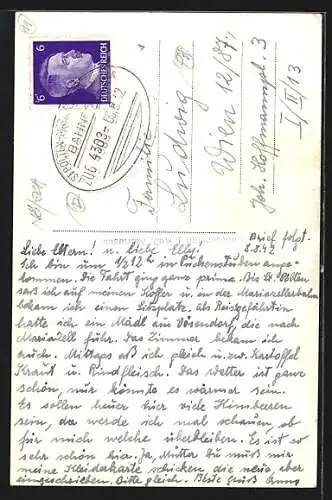 6 6
DEUTSCHES REICH
BAHN
ZUG 4303
Familie
Ludwig
Wien 12/87,
Joh. Hoffmannpl. 3
I/II/13
Brief folgt.
8.8.42
Liebe Eltern! u. Liebe Elly!
Ich bin um 1/2 12 h in Puchenstuben ange-
kommen. Die Fahrt ging ganz prima. Bis St. Pölten
saß ich auf meinen Koffer u. in der Mariazellerbahn
bekam ich einen Sitzplatz. Als Reisegefährtin
hatte ich ein Mädl aus Vösendorf, die nach
Mariazell fuhr. Das Zimmer bekam ich
auch. Mittags aß ich gleich u. zw. Kartoffel
Kraut u. Rindfleisch. Das Wetter ist ganz
schön, nur könnte es wärmer sein.
Es sollen heuer hier viele Himbeeren
sein, da werde ich mal schauen, ob
für mich welche überbleiben. Es ist so
sehr schön hier. Ja, Mutter Du mußt mir
meine Kleiderkarte schicken, die neue, aber
eingeschrieben. Bitte gleich. Beste Grüße